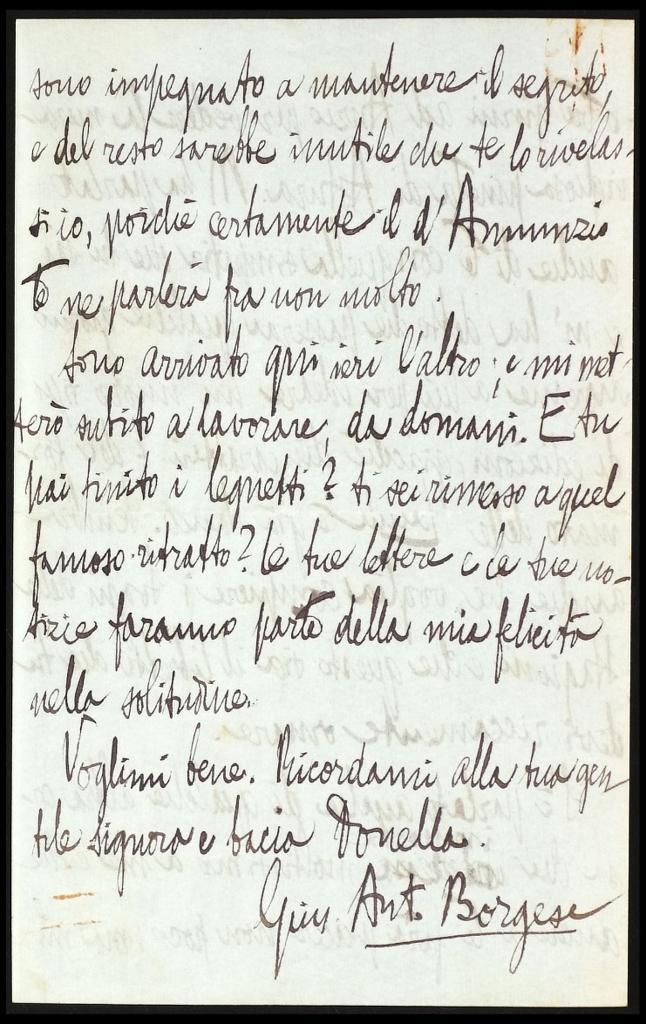 sono impegnato a mantenere il segreto,
e del resto sarebbe inutile che te lo rivelas-
si io, poichè certamente il d'Annunzio
te ne parlerà fra non molto.
Sono arrivato qui ieri l'altro; e mi met-
terò subito a lavorare, da domani. E tu
hai finito i legnetti? ti sei rimesso a quel
famoso ritratto? Le tue lettere e le tue no-
tizie faranno parte della mia felicità
nella solitudine.
Voglimi bene. Ricordami alla tua gen
tile signora e bacia Donella.
Gius. Ant. Borgese